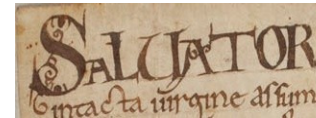 SALUATOR
intacta uirgine assum